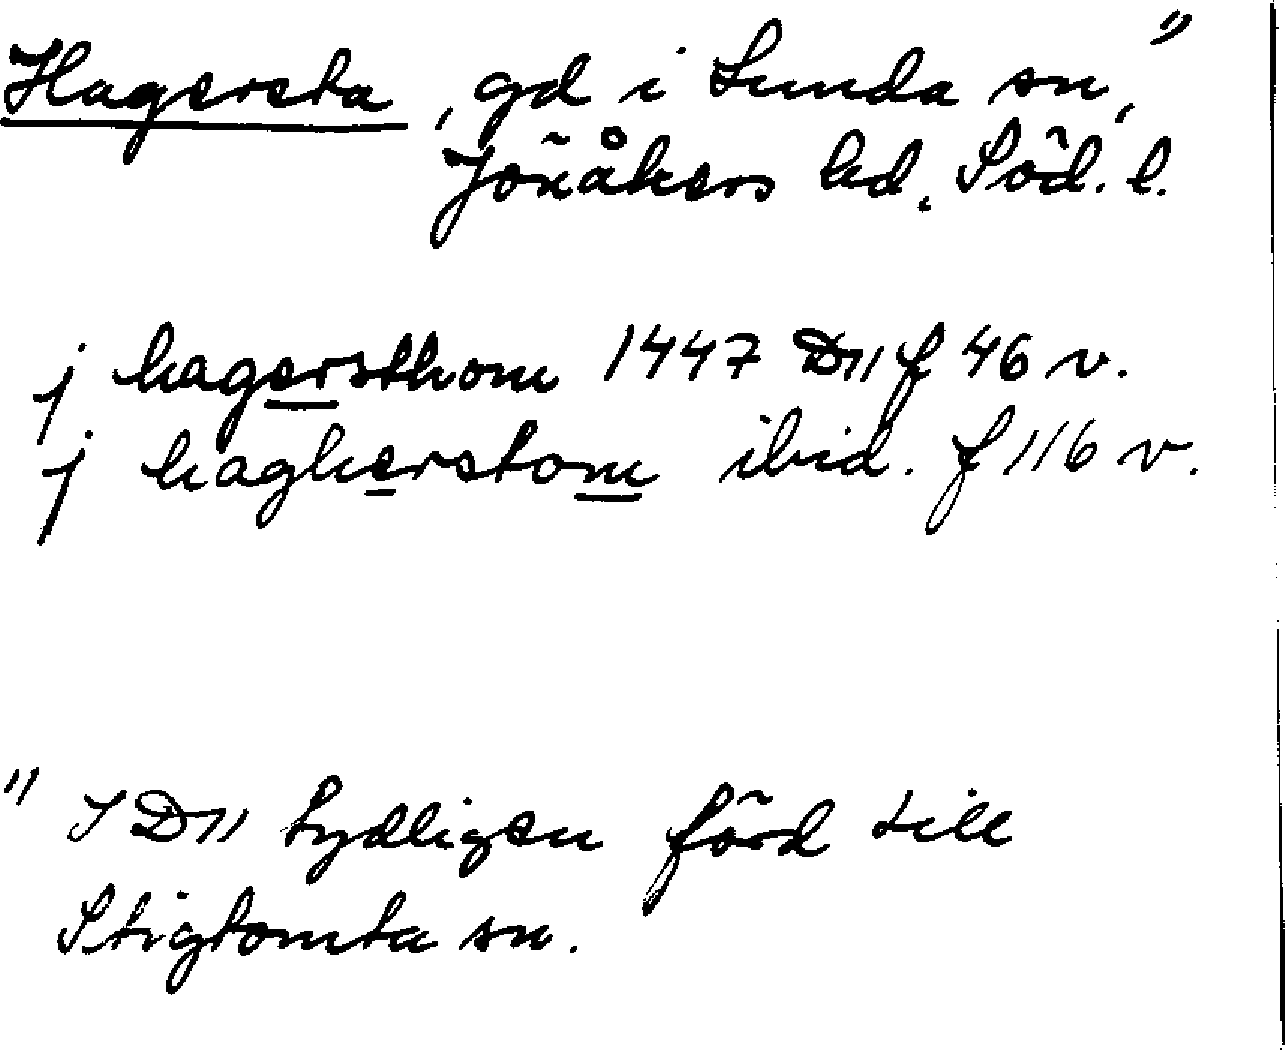 Hagersta, gd i Lunda sn, 1)
Jönåkers hd. Söd. l.
j hagersthom 1447 D11 f 46 v.
j hagherstom ibid. f 116 v.
1) I D11 tydligen förd till
Stigtomta sn.